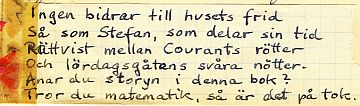 Ingen bidrar till husets frid
Så som Stefan, som delar sin tid
Rättvist mellan Courants rötter
Och lördagsgåtans svåra nötter.
Anar du storyn i denna bok?
Tror du matematik, så är det på tok.